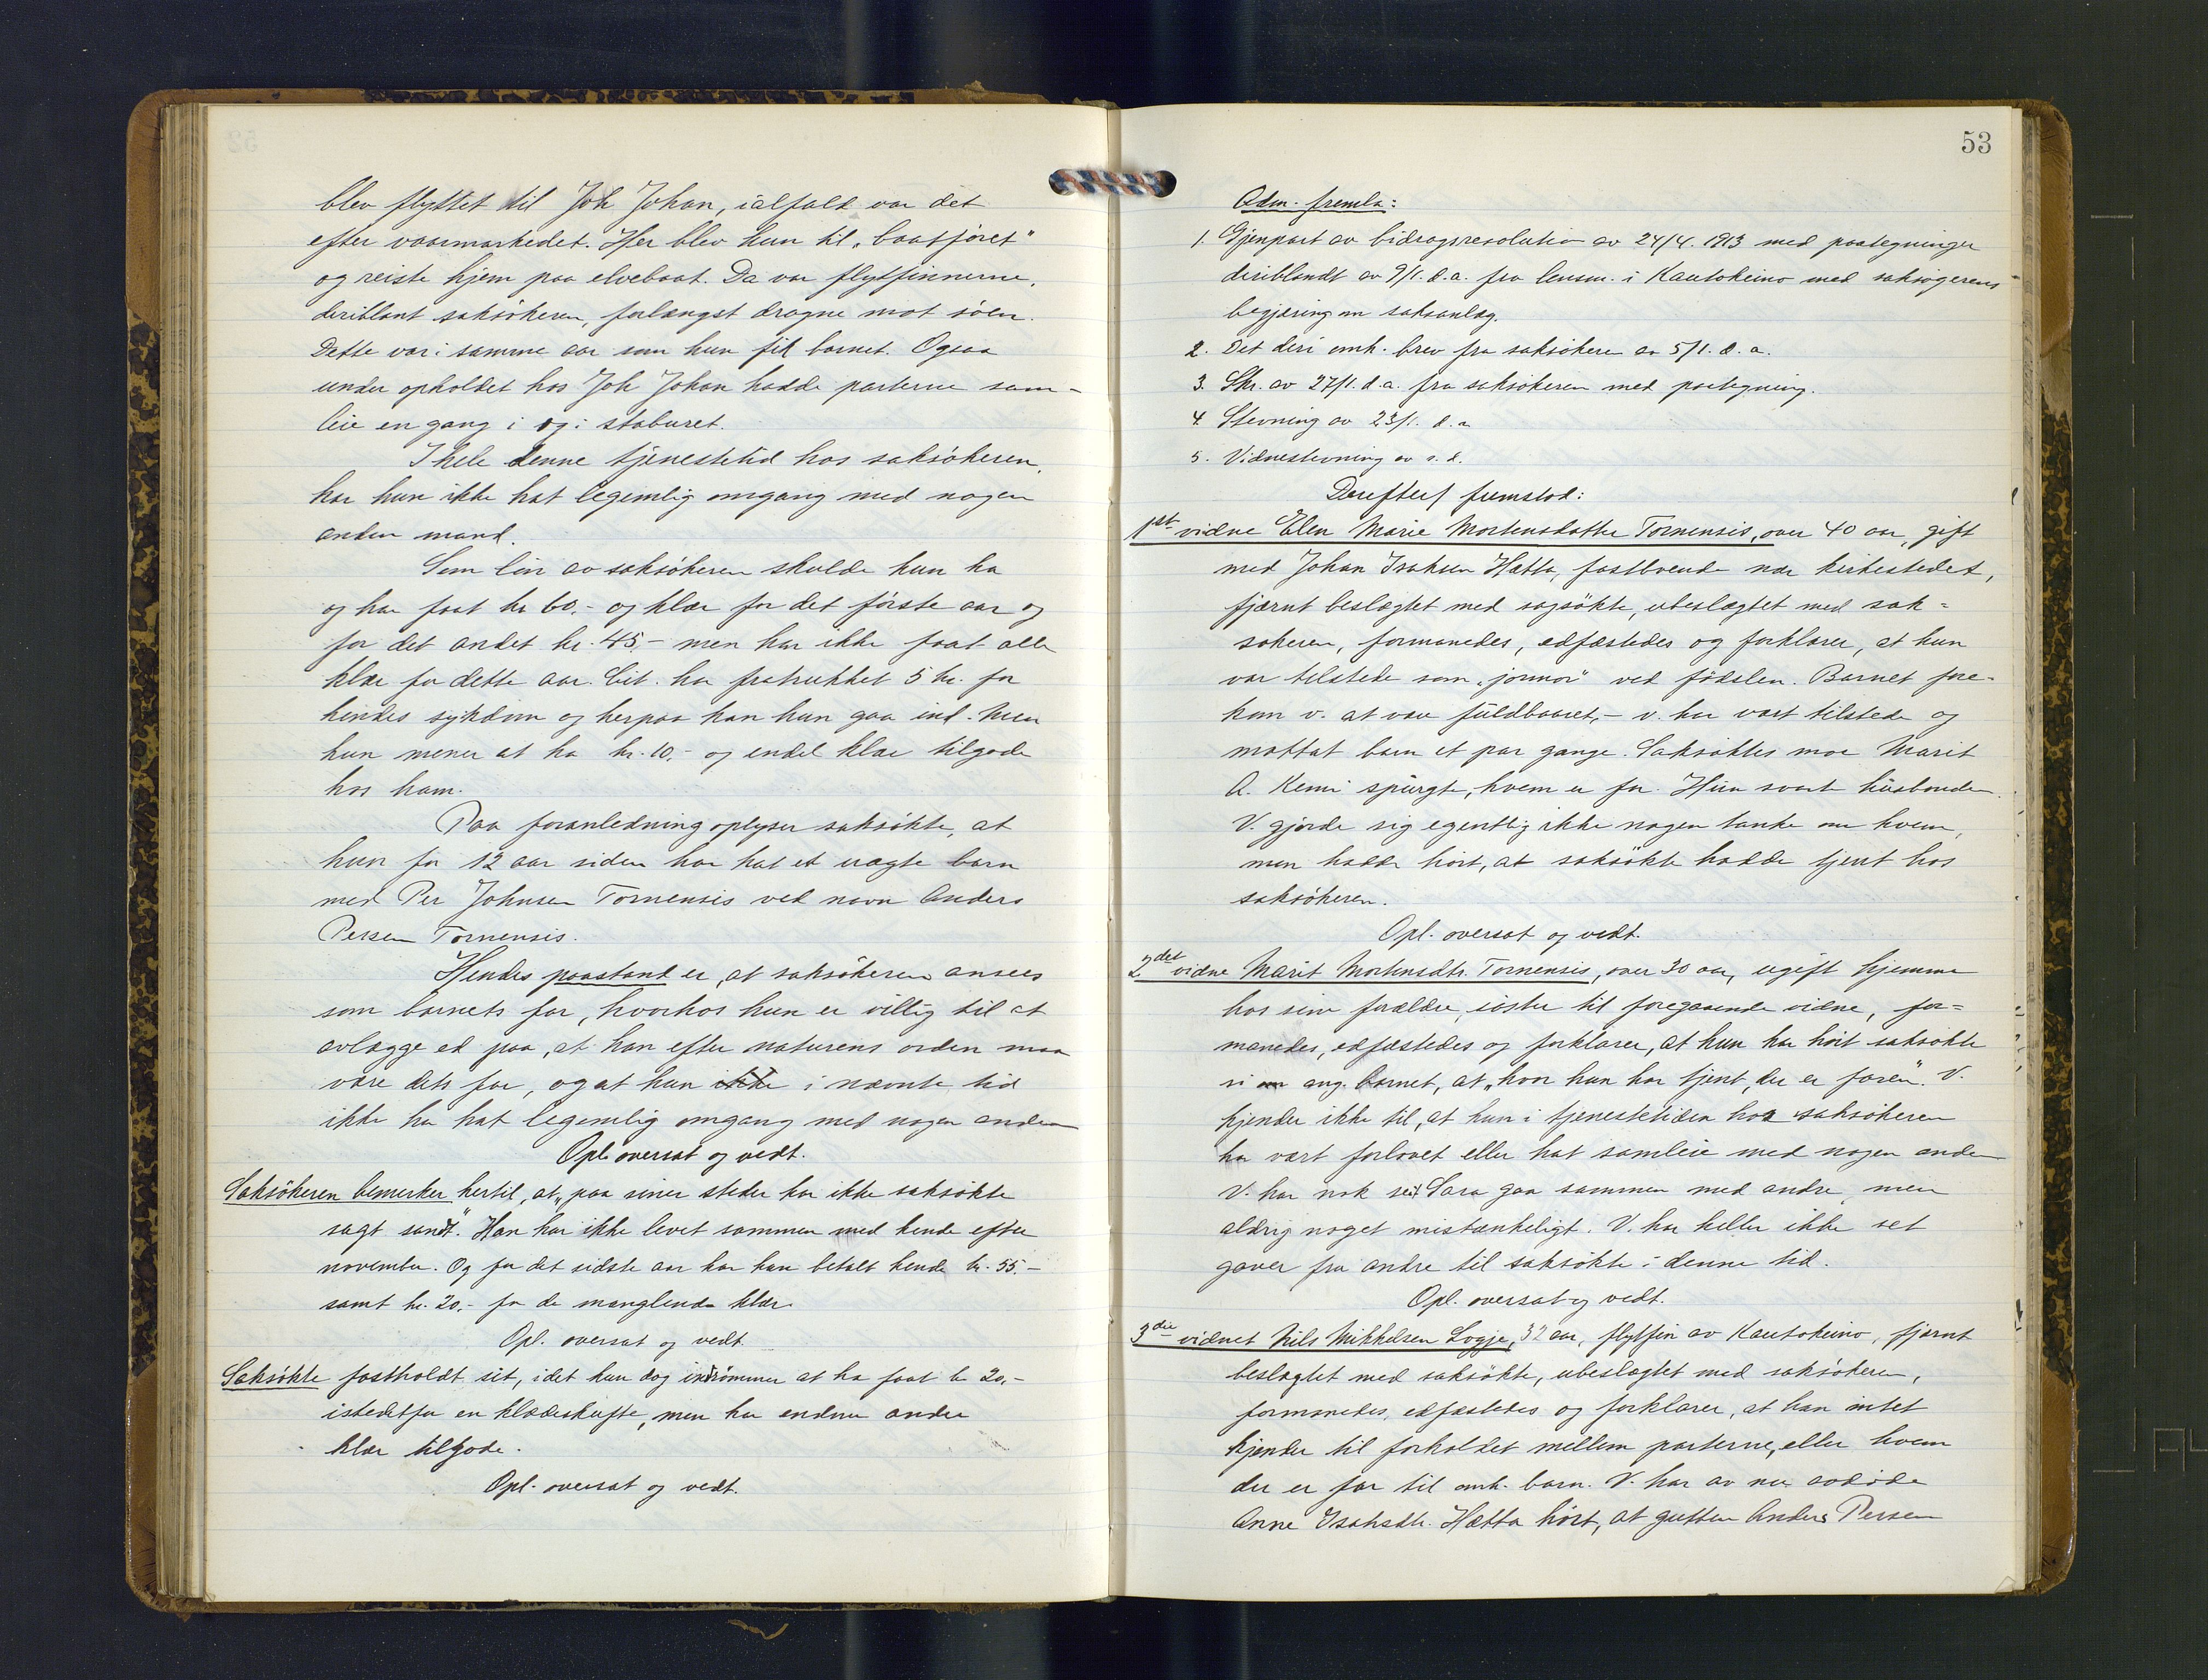 blev flyttet til Joh Johan, ialfald var det
efter vaarmarkedet. Her blev hun til „baatføret"
og reiste hjem paa elvebaat. Da var flytfinnerne,
deriblant saksökeren, forlængst dragne mot söen.
Dette var i samme aar som hun fik barnet. Ogsaa
under opholdet hos Joh Johan hadde parterne sam-
leie en gang i og i staburet.
I hele denne tjenestetid hos saksökeren,
har hun ikke hat legemlig omgang med nogen
anden mand.
Som lön av saksökeren skulde hun ha
og har faat kr 60.- og klær for det förste aar og
for det andet kr. 45,- men har ikke faat alle
klær for dette aar. Cit. har fratrukket 5 kr. for
hendes sykdom og herpaa kan hun gaa ind. Men
hun mener at ha kr. 10.- og endel klær tilgode
hos ham.
Paa foranledning oplyser saksökte, at
hun for 12 aar siden har hat et uægte barn
med Per Johnsen Tornensis ved navn Anders
Persen Tornensis.
Hendes paastand er, at saksökeren ansees
som barnets far, hvorhos hun er villig til at
avlægge ed paa, at han efter naturens orden maa
være dets far, og at hun ikke i nævnte tid
ikke har hat legemlig omgang med nogen anden
Opl. oversat og vedt.
Saksökeren bemerker hertil, at „paa siner steder har ikke saksökte
sagt sandt". Han har ikke levet sammen med hende efter
november. Og for det sidste aar har han betalt hende kr. 55.-
samt kr. 20.- for de manglende klær.
Opl. oversat og vedt.
Saksökte fastholdt sit, idet hun dog indrömmer at ha faat kr 20.-
istedetfor en klædeskufte, men har endnu andre
klær tilgode.
Opl. oversat og vedt.
53
Adm. fremla:
1. Gjenpart av bidragsresolution av 24/4. 1913 med paategninger
deriblandt av 9/1. d.a. fra lensm. i Kautokeino med saksøgerens
begjæring om saksanlæg.
2. Det deri omh. brev fra saksökeren av 5/1. d. a.
3. Skr. av 27/1. d.a. fra saksökeren med paategning.
4. Stevning av 23/1. d. a
5. Vidnestevning av s. d.
Derefter fremstod:
1st vidne Elen Marie Mortensdatter Tornensis, over 40 aar, gift
med Johan Isaksen Hætta, fastboende nær kirkestedet,
fjærnt beslægtet med sagsökte, ubeslægtet med sak=
sökeren, formanedes, edfæstedes og forklarer, at hun
var tilstede som „jormor" ved födslen. Barnet fore-
kom v. at være füldbaaret, - v. har vært tilstede og
mottat barn et par gange. Saksöktes mor Marit
A. Kemi spürgte, hvem er far. Hün svart hüsbonden.
V. gjorde sig egentlig ikke nogen tanke om hvem,
men hadde hört, at saksökte hadde tjent hos
saksökeren.
Opl. oversat og vedt.
2det vidne Marit Mortensdtr. Tornensis, over 30 aar, ugift hjemme
hos sine forældre, söster til foregaaende vidne, for=
manedes, edfæstedes og forklarer, at hun har hört saksökte
si om ang. barnet, at „hvor hun har tjent, der er faren". V.
kjender ikke til, at hun i tjenestetiden hos saksökeren
har vært forlovet eller hat samleie med nogen anden
V. har nok set Sara gaa sammen med andre, men
aldrig noget mistænkeligt. V. har heller ikke set
gaver fra andre til saksökte i denne tid.
Opl. oversat og vedt.
3die vidnet Nils Mikkelsen Logje, 32 aar, flytfin av Kautokeino, fjernt
beslægtet med saksökte, ubeslægtet med saksökeren,
formanedes, edfæstedes og forklarer, at han intet
kjender til forholdet mellem parterne, eller hvem
der er far til omh. barn. V. har av nu avdöde
Anne Isaksdtr. Hætta hört, at gutten Anders Persen